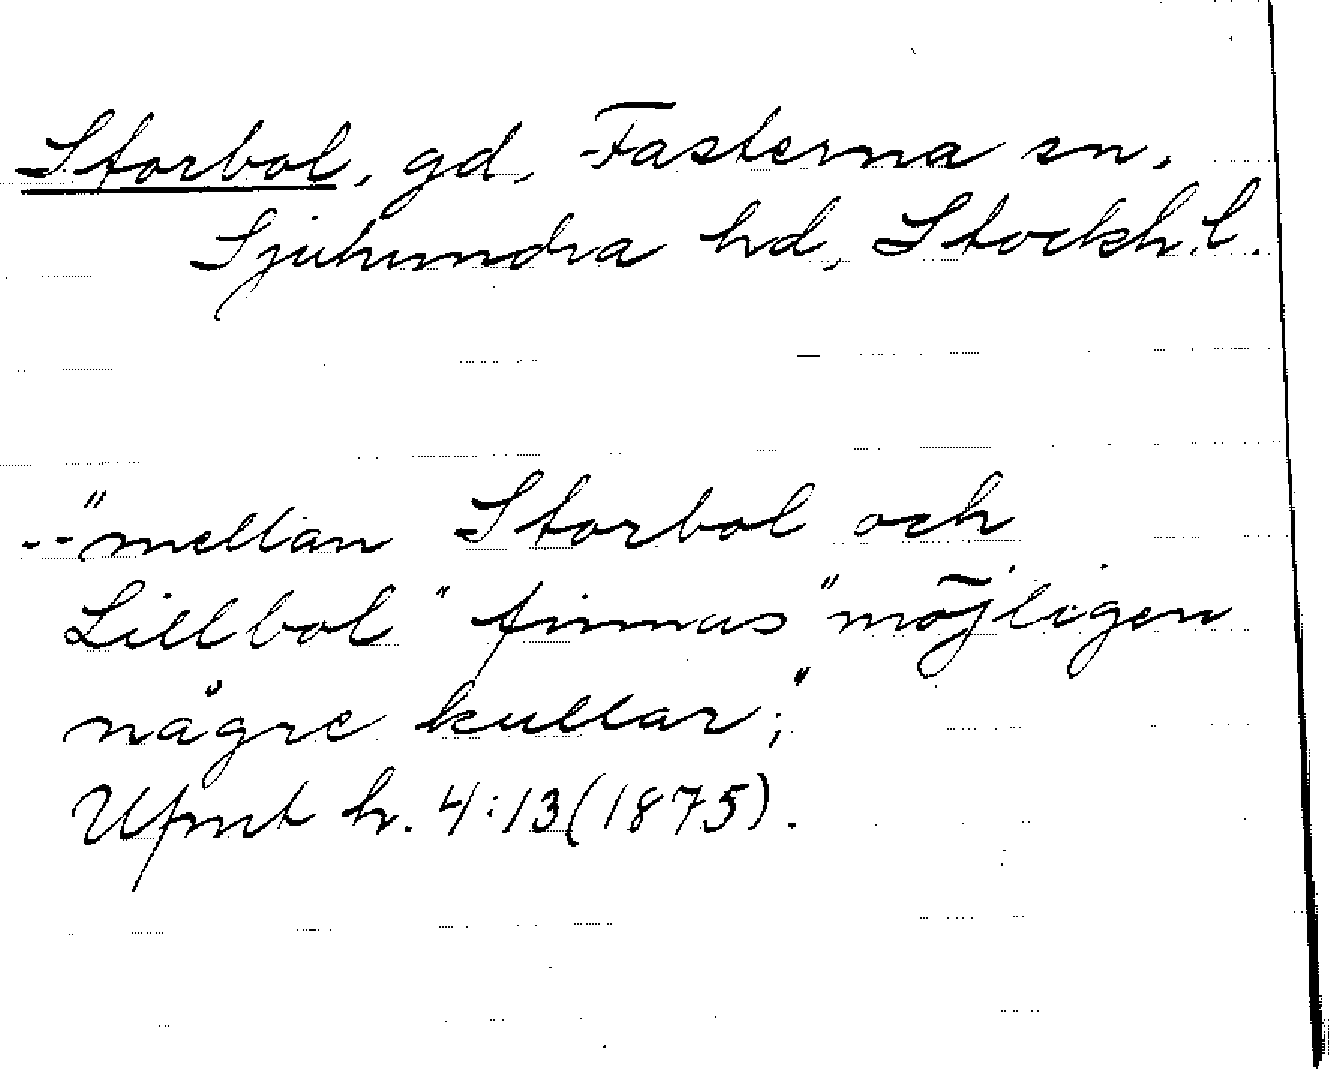 Storbol, gd, Fasterna sn,
Sjuhundra hd, Stockh. l.
--"mellan Storbol och
Lillbol" finnas "möjligen
några kullar;"
Ufmt h. 4:13 (1875).